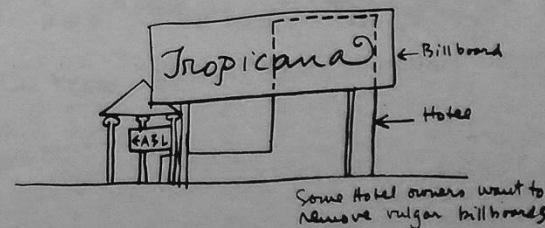 Tropicana
Billboard
Hotel
←A3L
Some Hotel owners want to
remove vulgar billboards